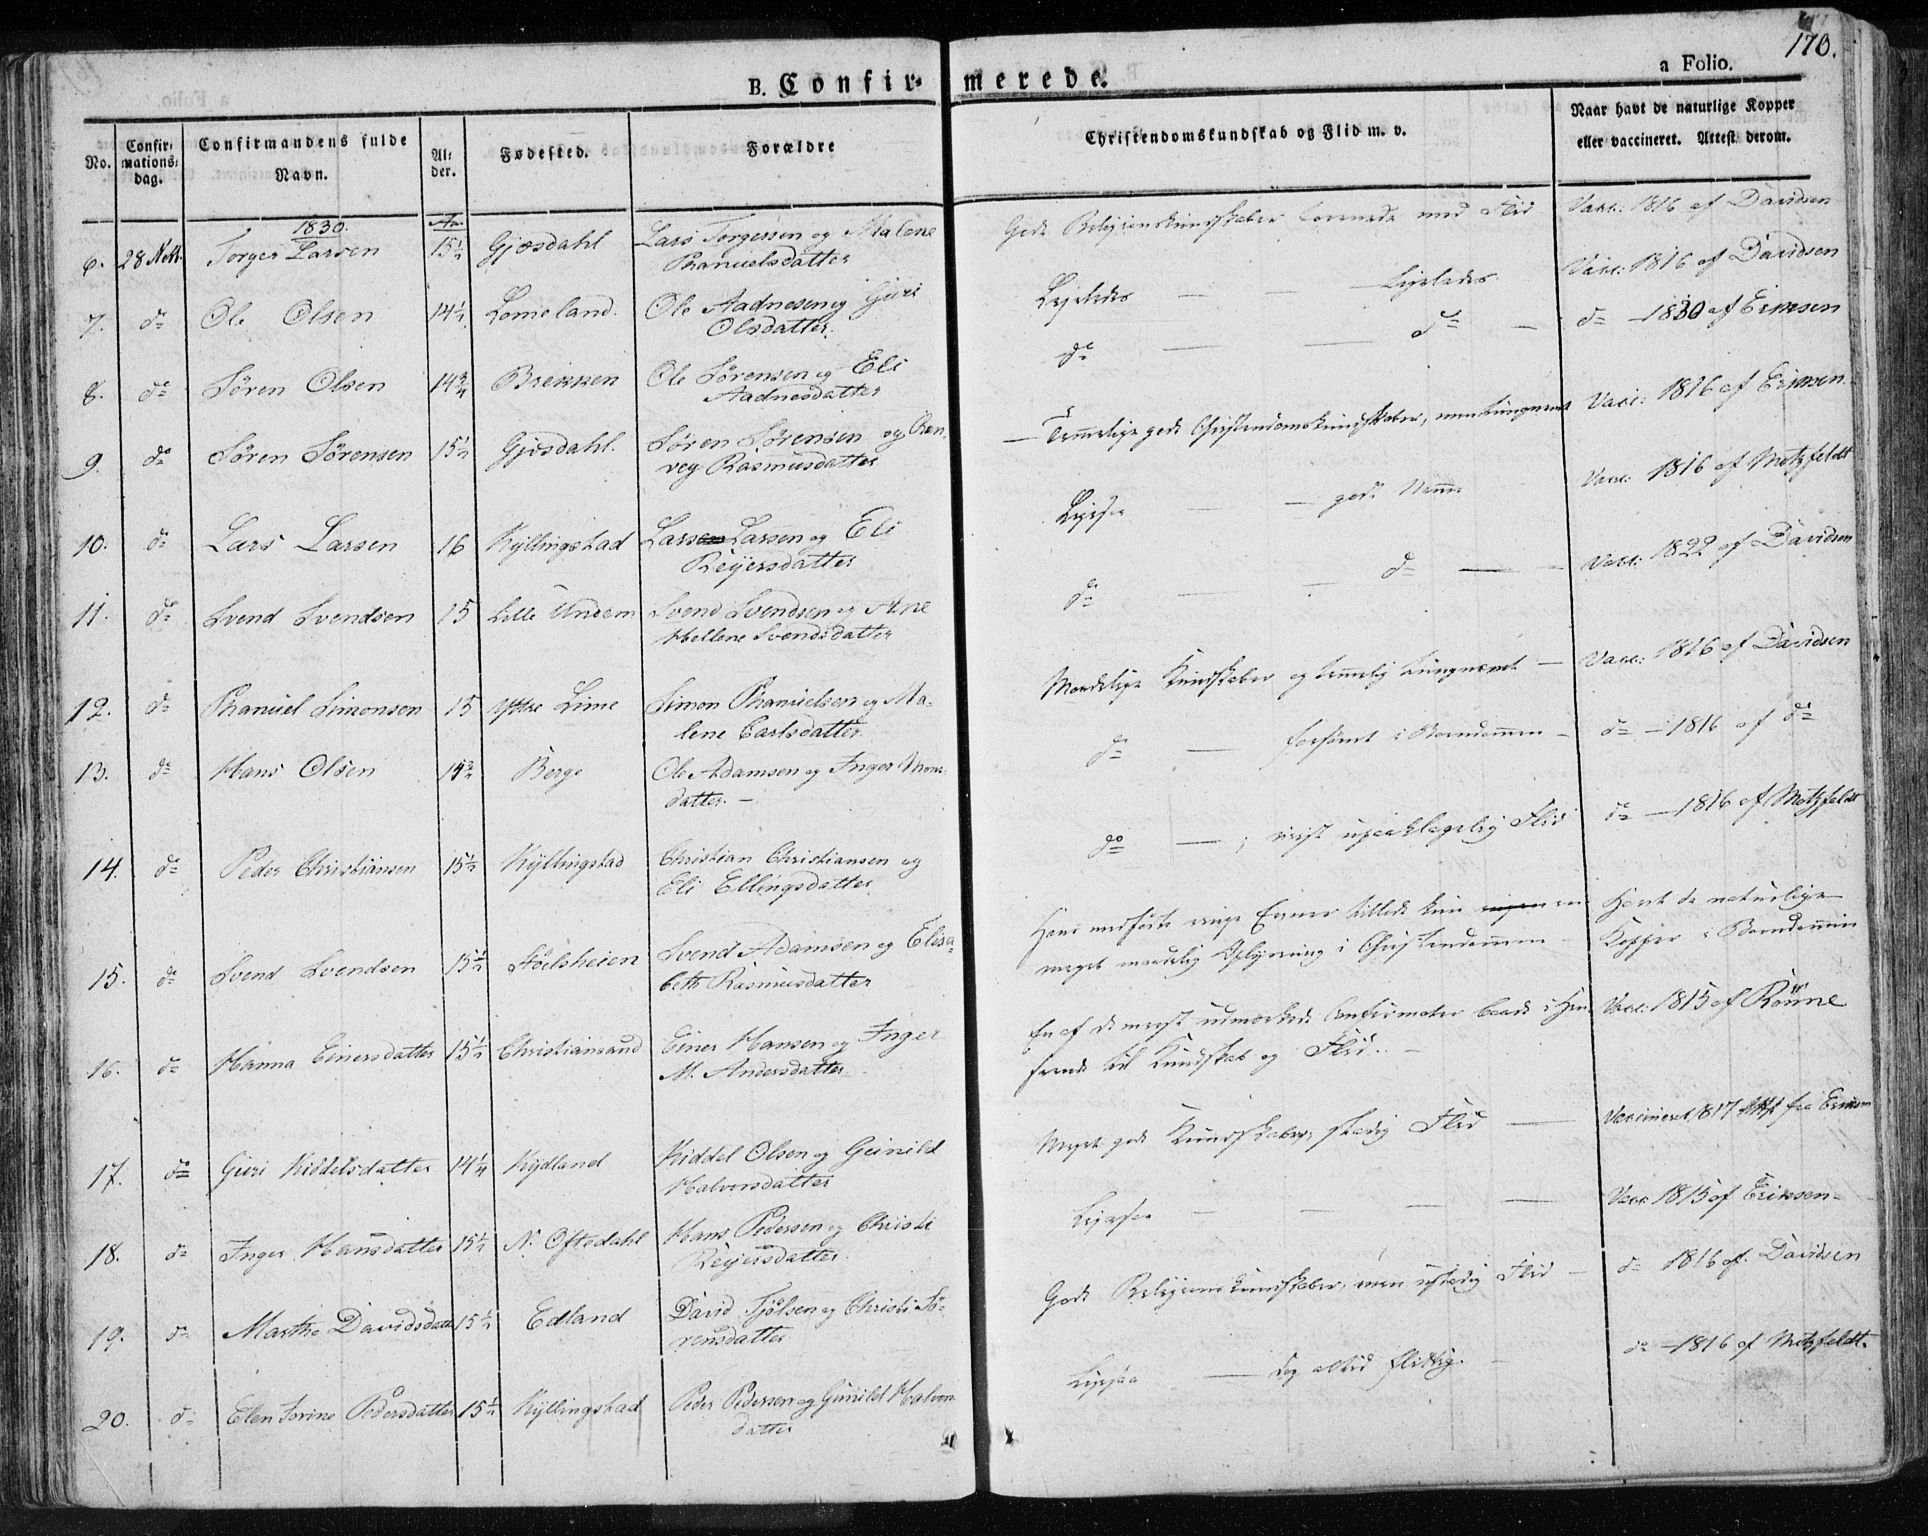 170.
a Folio.
B. Confirmerede.
No.
Confirmations-dag.
Confirmandens fulde Navn.
Alder.
Fødested.
Forældre
Christendomskundskab og Flid m. v.
Naar havt de naturlige Kopper eller vaccineret. Attest derom.
1830.
6. 28 Torger Larsen 15½ Gjøsdahl Lars Torgersen og Malene
Phanuelsdatter
Gode Religionskundskaber forenede med Flid
Vacc: 1816 af Davidsen
7. do Ole Olsen 14½ Lomeland. Ole Aadnesen og Guri
Olsdatter.
Ligeledes — — Ligeledes
Vacc: 1816 af Davidsen
8. do Sören Olsen 14¾ Brekken Ole Sörensen og Eli
Aadnesdatter
do — — do —
do — 1830 af Eriksen
9. do Sören Sörensen 15½ Gjøsdahl. Sören Sörensen og Ran-
veg Rasmusdatter
— Temmelige gode Christendomskundskaber, men tungnemt
Vacc: 1816 af Eriksen
10. do Lars Larsen 16 Kyllingstad Lars Larsen og Eli
Reijersdatter
Ligesaa — — godt Nemme
Vacc: 1816 af Motzfeldt
11. do Svend Svendsen 15 Lille Undem Svend Svendsen og Ane
Hellene Svendsdatter
do — — do —
Vacc: 1822 af Davidsen
12. do Phanuel Simonsen 15 Yttre Lime Simon Phanuelsen og Ma-
lene Carlsdatter
Maadelige Kundskaber og temmelig tungnemt —
Vacc: 1816 af Davidsen
13. do Hans Olsen 14¾ Berge Ole Adamsen og Inger
datter. —
do — forsömt i Barndommen —
do — 1816 af do
14. do Peder Christiansen 15½ Kyllingstad Christian Christiansen og
Eli Ellingsdatter
do — ; viist upaaklagelig Flid
do — 1816 af Motzfeldt
15. do Svend Svendsen 15½ Støelsheien Svend Adamsen og Elisa-
beth Rasmusdatter
Hans medfødte ringe Evner tillode kun en
meget maadelig Oplysning i Christendommen —
Havt de naturlige
Kopper i Barndommen
16. do Hanna Einersdatter 15½ Christiansand Einer Hansen og Inger
M. Andersdatter
En af de meest udmærkede Confirmater baade i Hen-
seende til Kundskab og Flid. —
Vacc: 1815 af Rönne
17. do Guri Kiddelsdatter 14¼ Kydland Kiddel Olsen og Gunild
Halvorsdatter
Meget gode Kundskaber, stadig Flid —
Vaccineret 1817 Att fra Eriksen
18. do Inger Hansdatter 15½ N. Oftedahl Hans Pedersen og Christi
Reijersdatter
Ligesaa — — — —
Vacc. 1815 af Eriksen
19. do Marthe Davidsdatter 15½ Edland David Tjölsen og Christi Sö-
rensdatter
Gode Religionskundskaber, men ustadig Flid —
do 1816 af. Davidsen
20. do Elen Sorine Pedersdatter 15½ Kyllingstad Peder Pedersen og Gunild Halvors
datter
Ligesaa — dog altid flittig. —
do — 1816 af Motzfeldt.